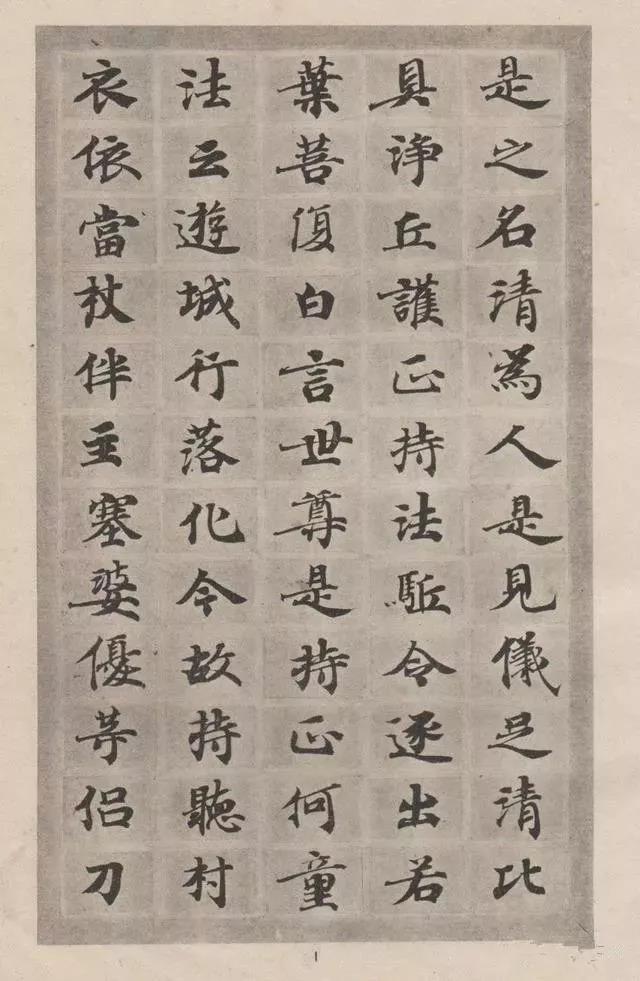 是之名清為人是見儀足清比
具諍丘護正持法駈令逐出若
葉菩復白言世尊是持正何童
法云遊城行落化令故持聽村
衣依當杖伴主塞婆優等侣刀
1